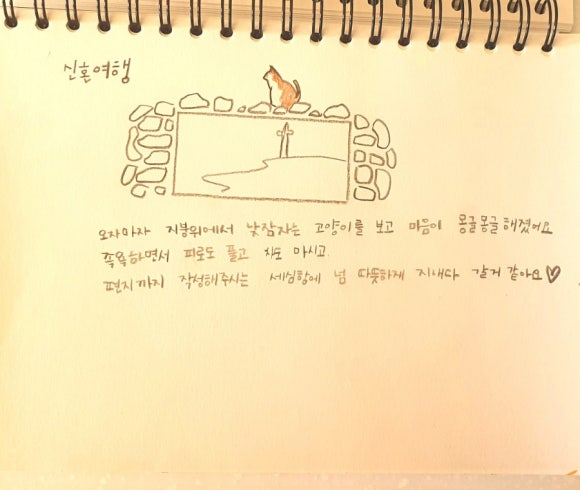 신혼여행
오자마자 지붕위에서 낮잠자는 고양이를 보고 마음이 몽글몽글해졌어요
족욕하면서 피로도 풀고 차도 마시고.
편지까지 작성해주시는 세심함에 넘 따뜻하게 지내다 갈거 같아요♡